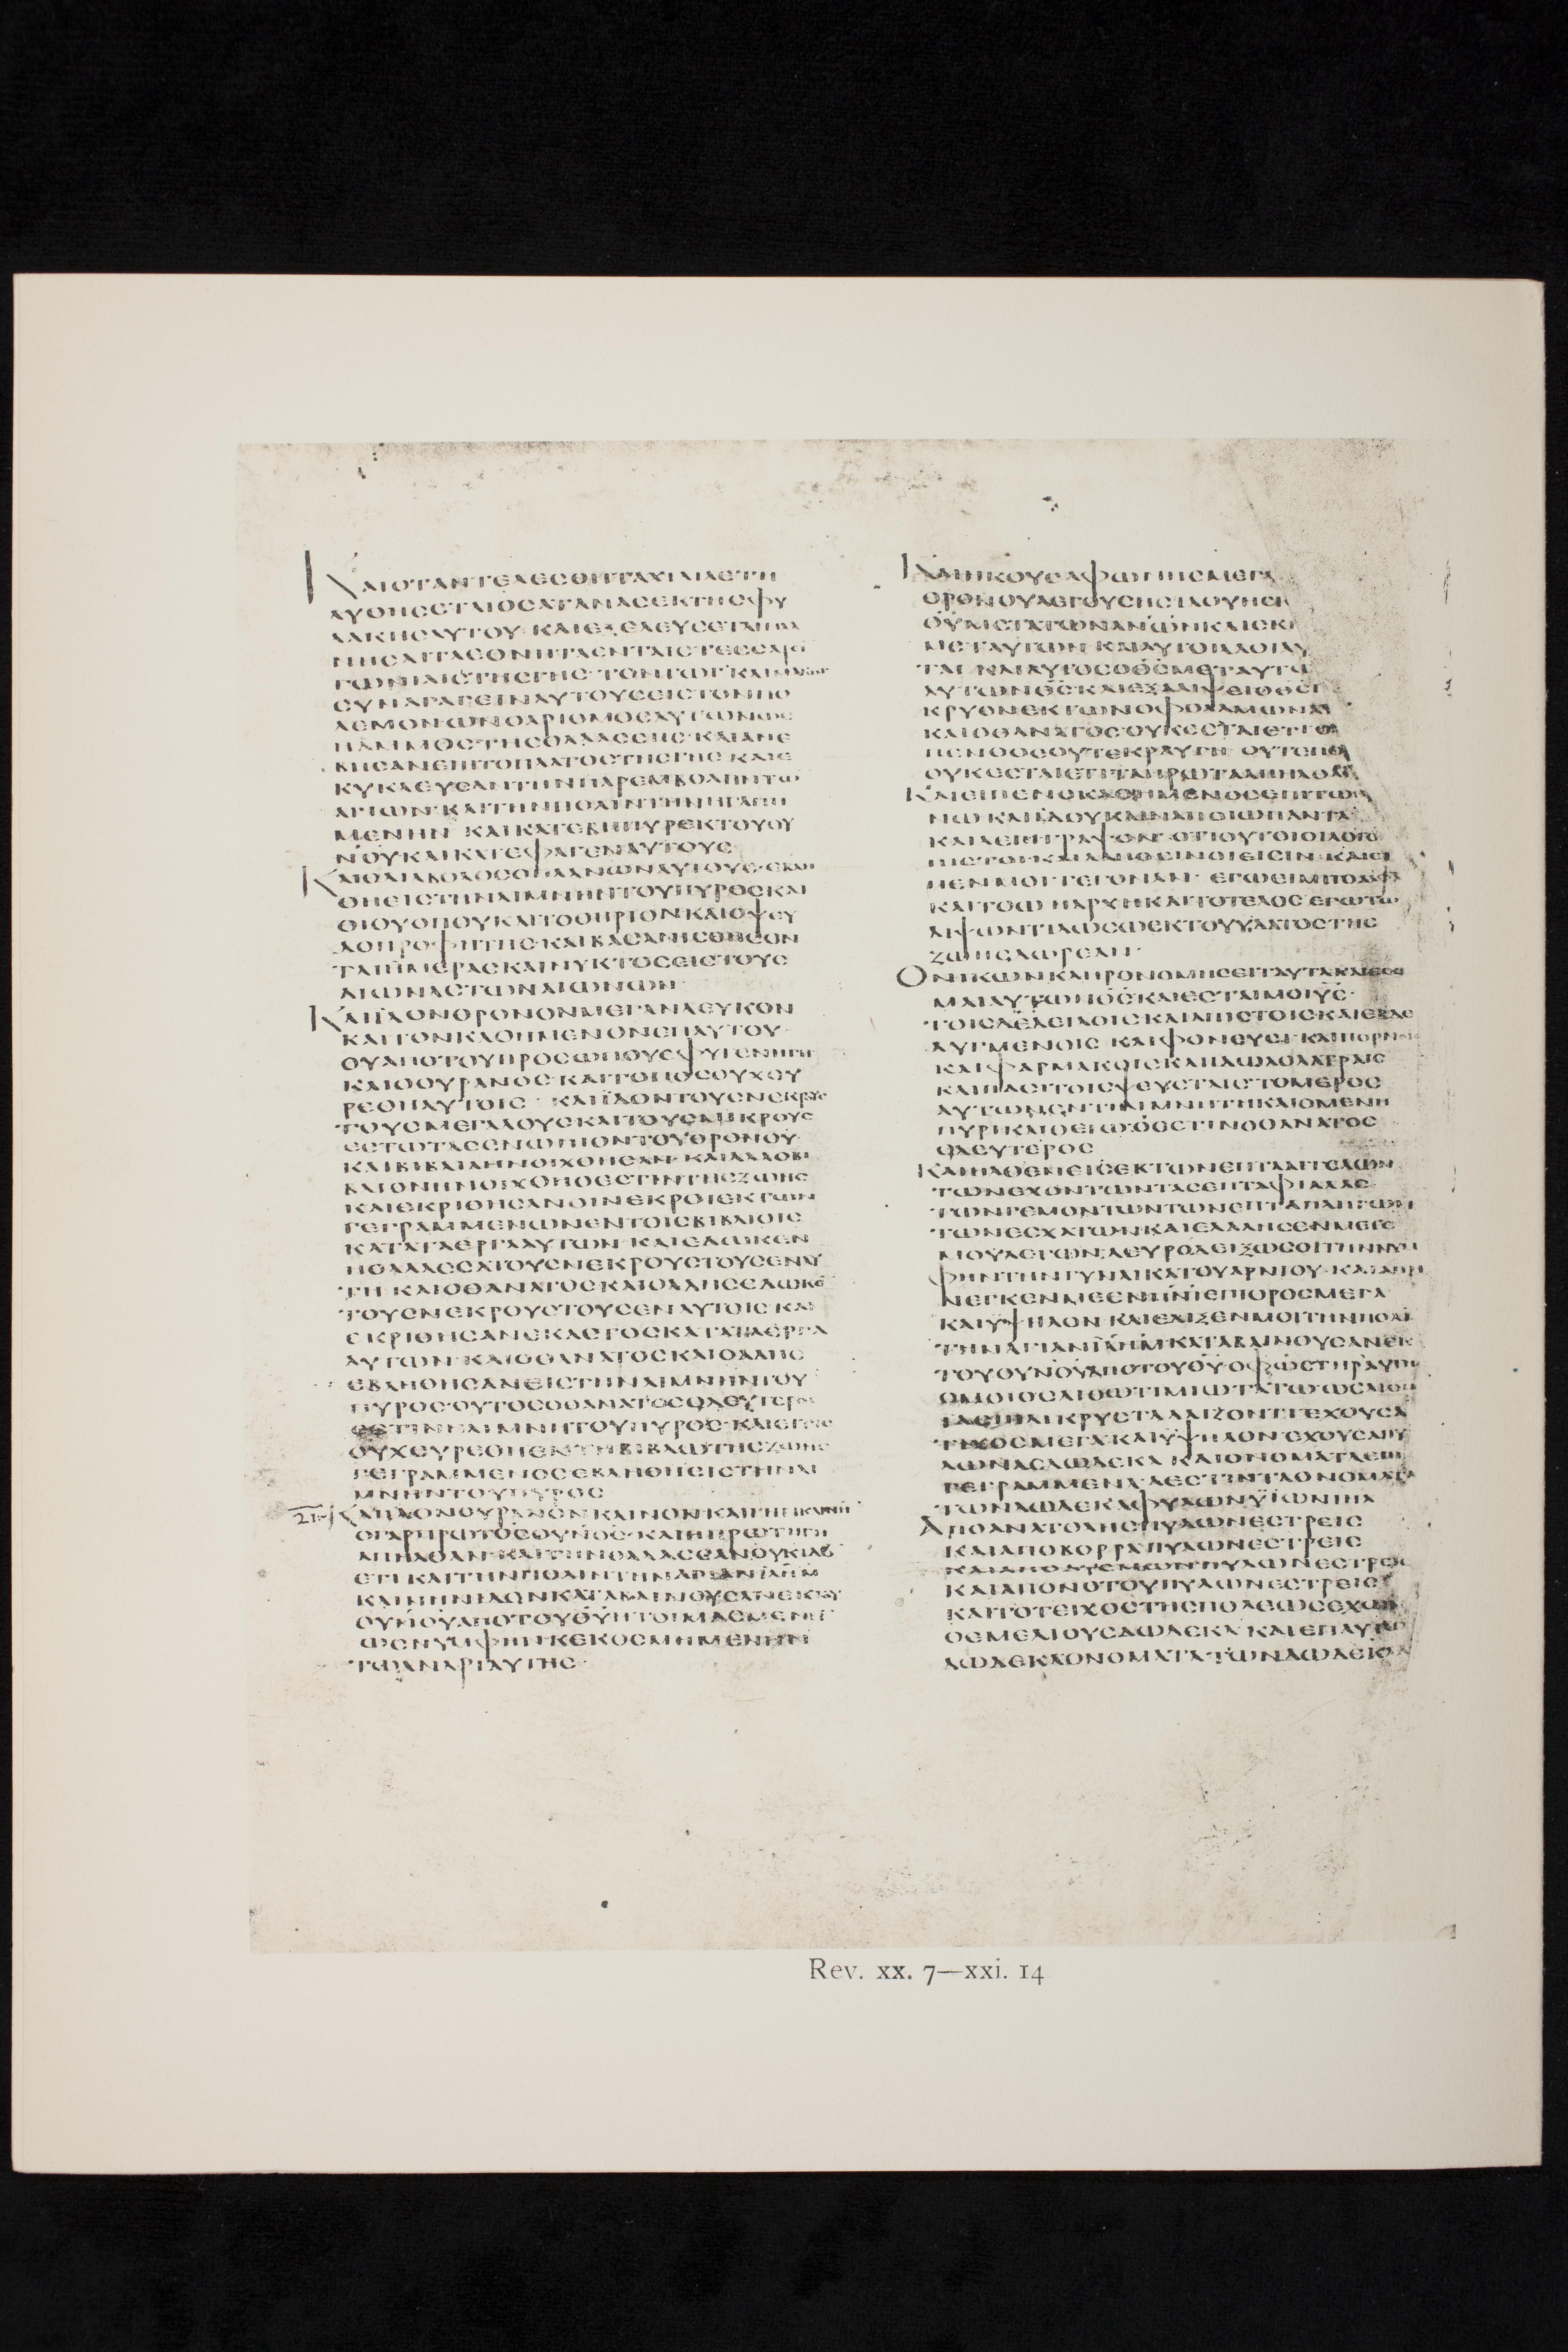 ΚΑΙΟΤΑΝΤΕΛΕϹΘΗΤΑΧΙΛΙΑΕΤΗ
ΛΥΘΗϹΕΤΑΙΟϹΑΤΑΝΑϹΕΚΤΗϹΦΥ
ΛΑΚΗϹΑΥΤΟΥ· ΚΑΙΕΞΕΛΕΥϹΕΤΑΙΠΛΑ
ΝΗϹΑΙΤΑΕΘΝΗΤΑΕΝΤΑΙϹΤΕϹϹΑΡϹΙ
ΓΩΝΙΑΙϹΤΗϹΓΗϹ· ΤΟΝΓΩΓΚΑΙ
ϹΥΝΑΓΑΓΕΙΝΑΥΤΟΥϹΕΙϹΤΟΝΠΟ
ΛΕΜΟΝΩΝΟΑΡΙΘΜΟϹΑΥΤΩΝΩϹ
ΗΑΜΜΟϹΤΗϹΘΑΛΑϹϹΗϹ· ΚΑΙΑΝΕ
ΒΗϹΑΝΕΠΙΤΟΠΛΑΤΟϹΤΗϹΓΗϹ ΚΑΙΕ
ΚΥΚΛΕΥϹΑΝΤΗΝΠΑΡΕΜΒΟΛΗΝΤΩ
ΑΓΙΩΝ· ΚΑΙΤΗΝΠΟΛΙΝΤΗΝΗΓΑΠΗ
ΜΕΝΗΝ ΚΑΙΚΑΤΕΒΗΠΥΡΕΚΤΟΥΟΥ
ΝΟΥΚΑΙΚΑΤΕΦΑΓΕΝΑΥΤΟΥϹ·
ΚΑΙΟΔΙΑΒΟΛΟϹΟΠΛΑΝΩΝΑΥΤΟΥϹ· ΕΒΛΗ
ΘΗΕΙϹΤΗΝΛΙΜΝΗΝΤΟΥΠΥΡΟϹΚΑΙ
ΘΙΟΥΟΠΟΥΚΑΙΤΟΘΗΡΙΟΝΚΑΙΟΨΕΥ
ΔΟΠΡΟΦΗΤΗϹ· ΚΑΙΒΑϹΑΝΙϹΘΗϹΟΝ
ΤΑΙΗΜΕΡΑϹΚΑΙΝΥΚΤΟϹΕΙϹΤΟΥϹ
ΑΙΩΝΑϹΤΩΝΑΙΩΝΩΝ·
ΚΑΙΪΔΟΝΘΡΟΝΟΝΜΕΓΑΝΛΕΥΚΟΝ
ΚΑΙΤΟΝΚΑΘΗΜΕΝΟΝΕΠΑΥΤΟΥ·
ΟΥΑΠΟΤΟΥΠΡΟϹΩΠΟΥΕΦΥΓΕΝΗΓΗ
ΚΑΙΟΟΥΡΑΝΟϹ· ΚΑΙΤΟΠΟϹΟΥΧΕΥ
ΡΕΘΗΑΥΤΟΙϹ· ΚΑΙΪΔΟΝΤΟΥϹΝΕΚΡΟΥϹ
ΤΟΥϹΜΕΓΑΛΟΥϹΚΑΙΤΟΥϹΜΙΚΡΟΥϹ
ΕϹΤΩΤΑϹΕΝΩΠΙΟΝΤΟΥΘΡΟΝΟΥ·
ΚΑΙΒΙΒΛΙΑΗΝΟΙΧΘΗϹΑΝ· ΚΑΙΑΛΛΟΒΙ
ΒΛΙΟΝΗΝΟΙΧΘΗΟΕϹΤΙΝΤΗϹΖΩΗϹ
ΚΑΙΕΚΡΙΘΗϹΑΝΟΙΝΕΚΡΟΙΕΚΤΩΝ
ΓΕΓΡΑΜΜΕΝΩΝΕΝΤΟΙϹΒΙΒΛΙΟΙϹ
ΚΑΤΑΤΑΕΡΓΑΑΥΤΩΝ· ΚΑΙΕΔΩΚΕΝ
ΗΘΑΛΑϹϹΑΤΟΥϹΝΕΚΡΟΥϹΤΟΥϹΕΝΑΥ
ΤΗ· ΚΑΙΟΘΑΝΑΤΟϹΚΑΙΟΑΔΗϹΕΔΩΚΕ̄
ΤΟΥϹΝΕΚΡΟΥϹΤΟΥϹΕΝΑΥΤΟΙϹ· ΚΑΙ
ΕΚΡΙΘΗϹΑΝΕΚΑϹΤΟϹΚΑΤΑΤΑΕΡΓΑ
ΑΥΤΩΝ· ΚΑΙΟΘΑΝΑΤΟϹΚΑΙΟΑΔΗϹ
ΕΒΛΗΘΗϹΑΝΕΙϹΤΗΝΛΙΜΝΗΝΤΟΥ
ΠΥΡΟϹ· ΟΥΤΟϹΟΘΑΝΑΤΟϹΟΔΕΥΤΕΡΟϹ
ΕϹΤΙΝΗΛΙΜΝΗΤΟΥΠΥΡΟϹ· ΚΑΙΕΙΤΙϹ
ΟΥΧΕΥΡΕΘΗΕΝΤΗΒΙΒΛΩΤΗϹΖΩΗϹ
ΓΕΓΡΑΜΜΕΝΟϹΕΒΛΗΘΗΕΙϹΤΗΝΛΙ
ΜΝΗΝΤΟΥΠΥΡΟϹ
21· ΚΑΙΪΔΟΝΟΥΡΑΝΟΝΚΑΙΝΟΝΚΑΙΓΗΝΚΑΙΝΗΝ·
ΟΓΑΡΠΡΩΤΟϹΟΥΝΟϹ· ΚΑΙΗΠΡΩΤΗΓΗ
ΑΠΗΛΘΑΝ· ΚΑΙΤΗΝΘΑΛΑϹϹΑΝΟΥΚΙΔΟ̄
ΕΤΙ· ΚΑΙΤΗΝΠΟΛΙΝΤΗΝΑΓΙΑΝΙΛΗΜ
ΚΑΙΝΗΝΙΔΟΝΚΑΤΑΒΑΙΝΟΥϹΑΝΕΚΤΟΥ
ΟΥΝΟΥΑΠΟΤΟΥΘΥΗΤΟΙΜΑϹΜΕΝΗ̄
ΩϹΝΥΜΦΗΝΚΕΚΟϹΜΗΜΕΝΗΝ
ΤΩΑΝΔΡΙΑΥΤΗϹ·
ΚΑΙΗΚΟΥϹΑΦΩΝΗϹΜΕΓΑ
ΘΡΟΝΟΥΛΕΓΟΥϹΗϹΙΔΟΥΗϹΚ
ΘΥΜΕΤΑΤΩΝΑΝΩΝΚΑΙϹΚ
ΜΕΤΑΥΤΩΝ· ΚΑΙΑΥΤΟΙΛΑΟΙΑΥ
ΤΑΙ· ΚΑΙΑΥΤΟϹΟΘϹΜΕΤΑΥΤΩ
ΑΥΤΩΝΘϹ· ΚΑΙΕΞΑΛΙΨΕΙΟΘϹ
ΚΡΥΟΝΕΚΤΩΝΟΦΘΑΛΜΩΝΑΥ
ΚΑΙΟΘΑΝΑΤΟϹΟΥΚΕϹΤΑΙΕΤΙΟ
ΠΕΝΘΟϹΟΥΤΕΚΡΑΥΓΗ· ΟΥΤΕΠΟ
ΟΥΚΕϹΤΑΙΕΤΙΤΑΠΡΩΤΑΑΠΗΛΘΑ
ΚΑΙΕΙΠΕΝΟΚΑΘΗΜΕΝΟϹΕΠΙΤΩ
ΝΩ· ΚΑΙΪΔΟΥΚΑΙΝΑΠΟΙΩΠΑΝΤΑ
ΚΑΙΛΕΓΕΙΓΡΑΨΟΝ· ΟΤΙΟΥΤΟΙΟΙΛΟΓΟΙ
ΠΙϹΤΟΙΚΑΙΑΛΗΘΕΙΝΟΙΕΙϹΙΝ· ΚΑΙΕΙ
ΠΕΝΜΟΙΓΕΓΟΝΑΝ· ΕΓΩΕΙΜΙΤΟΑ
ΚΑΙΤΟΩ ΗΑΡΧΗΚΑΙΤΟΤΕΛΟϹ ΕΓΩΤΩ
ΔΙΨΩΝΤΙΔΩϹΩΕΚΤΟΥΥΔΑΤΟϹΤΗϹ
ΖΩΗϹΔΩΡΕΑΝ·
ΟΝΙΚΩΝΚΛΗΡΟΝΟΜΗϹΕΙΤΑΥΤΑΚΑΙΕϹΟ
ΜΑΙΑΥΤΩΝΘϹΚΑΙΕϹΤΑΙΜΟΙΥϹ·
ΤΟΙϹΔΕΔΕΙΛΟΙϹΚΑΙΑΠΙϹΤΟΙϹΚΑΙΕΒΔΕ
ΛΥΓΜΕΝΟΙϹ ΚΑΙΦΟΝΕΥϹΙ· ΚΑΙΠΟΡΝΟΙϹ
ΚΑΙΦΑΡΜΑΚΟΙϹΚΑΙΙΔΩΛΟΛΑΤΡΑΙϹ
ΚΑΙΠΑϹΙΤΟΙϹΨΕΥϹΤΑΙϹ· ΤΟΜΕΡΟϹ
ΑΥΤΩΝΕΝΤΗΛΙΜΝΗΤΗΚΑΙΟΜΕΝΗ
ΠΥΡΙΚΑΙΘΕΙΩ· ΟΕϹΤΙΝΟΘΑΝΑΤΟϹ
ΟΔΕΥΤΕΡΟϹ
ΚΑΙΗΛΘΕΝΕΙϹΕΚΤΩΝΕΠΤΑΑΓΓΕΛΩΝ
ΤΩΝΕΧΟΝΤΩΝΤΑϹΕΠΤΑΦΙΑΛΑϹ·
ΤΩΝΓΕΜΟΝΤΩΝΤΩΝΕΠΤΑΠΛΗΓΩΝ
ΤΩΝΕϹΧΑΤΩΝ· ΚΑΙΕΛΑΛΗϹΕΝΜΕΤΕ
ΜΟΥΛΕΓΩΝ· ΔΕΥΡΟΔΕΙΞΩϹΟΙΤΗΝΝΥΜ
ΦΗΝΤΗΝΓΥΝΑΙΚΑΤΟΥΑΡΝΙΟΥ· ΚΑΙΑΠΗ
ΝΕΓΚΕΝΜΕΕΝΠΝΙΕΠΙΟΡΟϹΜΕΓΑ
ΚΑΙΥΨΗΛΟΝ· ΚΑΙΕΔΙΞΕΝΜΟΙΤΗΝΠΟΛΙ
ΤΗΝΑΓΙΑΝΙΛΗΜΚΑΤΑΒΑΙΝΟΥϹΑΝΕΚ
ΤΟΥΟΥΝΟΥΑΠΟΤΟΥΘΥ· ΟΦΩϹΤΗΡΑΥΤΗϹ
ΟΜΟΙΟϹΛΙΘΩΤΙΜΙΩΤΑΤΩ· ΩϹΛΙΘΩ
ΙΑϹΠΙΔΙΚΡΥϹΤΑΛΛΙΖΟΝΤΙ· ΕΧΟΥϹΑ
ΤΙΧΟϹΜΕΓΑΚΑΙΥΨΗΛΟΝ· ΕΧΟΥϹΑΠΥ
ΛΩΝΑϹΔΩΔΕΚΑ ΚΑΙΟΝΟΜΑΤΑΕΠΙ
ΓΕΓΡΑΜΜΕΝΑ ΑΕϹΤΙΝΤΑΟΝΟΜΑΤΑ
ΤΩΝΔΩΔΕΚΑΦΥΛΩΝΫΙΩΝΙΗΛ
ΑΠΟΑΝΑΤΟΛΗϹΠΥΛΩΝΕϹΤΡΕΙϹ
ΚΑΙΑΠΟΒΟΡΡΑΠΥΛΩΝΕϹΤΡΕΙϹ
ΚΑΙΑΠΟΔΥϹΜΩΝΠΥΛΩΝΕϹΤΡΕΙϹ
ΚΑΙΑΠΟΝΟΤΟΥΠΥΛΩΝΕϹΤΡΕΙϹ
ΚΑΙΤΟΤΕΙΧΟϹΤΗϹΠΟΛΕΩϹΕΧΩΝ
ΘΕΜΕΛΙΟΥϹΔΩΔΕΚΑ· ΚΑΙΕΠΑΥΤΩ
ΔΩΔΕΚΑΟΝΟΜΑΤΑ· ΤΩΝΔΩΔΕΚΑ
Rev. xx. 7—xxi. 14